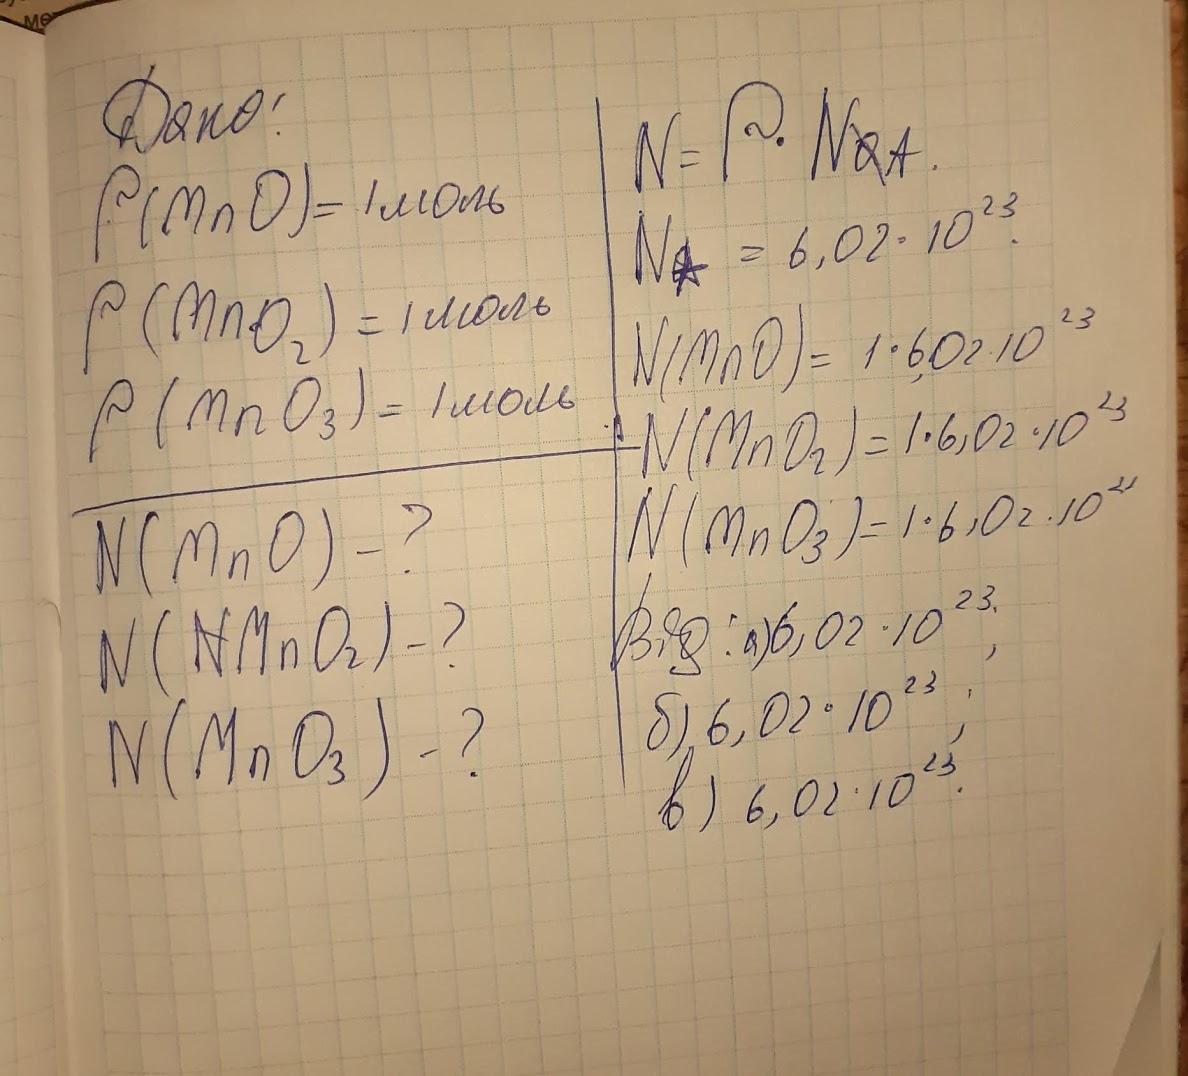 Дано:
ρ(MnO) = 1 моль
ρ(MnO₂) = 1 моль
ρ(MnO₃) = 1 моль
N(MnO) - ?
N(NMnO₂) - ?
N(MnO₃) - ?
N = ρ · NA.
NA = 6,02 · 10²³.
N(MnO) = 1 · 6,02 · 10²³
N(MnO₂) = 1 · 6,02 · 10²³
N(MnO₃) = 1 · 6,02 · 10²³
Від: а) 6,02 · 10²³;
б) 6,02 · 10²³;
в) 6,02 · 10²³.